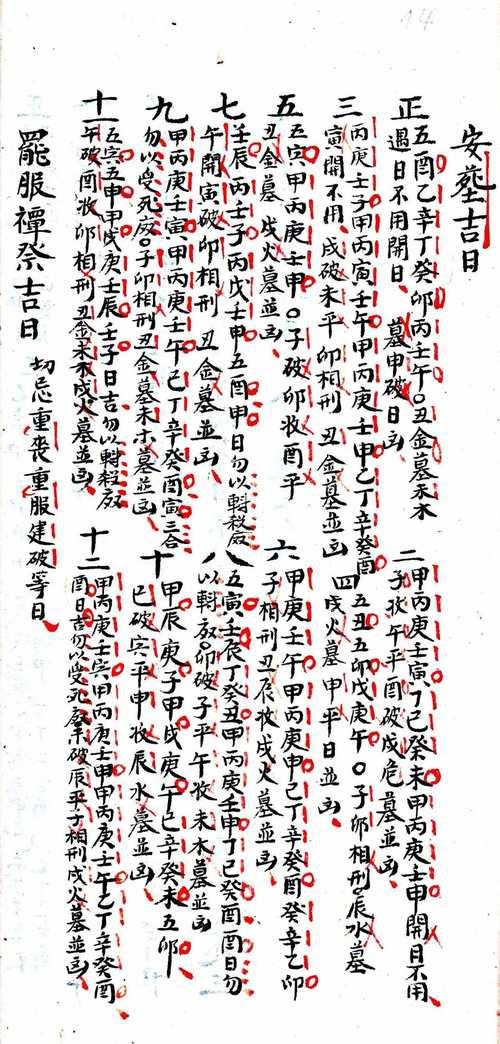 14
安葬吉日
正 五酉乙辛丁癸卯丙壬午○丑金墓未木
遇日不用開日、墓申破日凶
二 甲丙庚壬寅、丁己癸未甲丙庚壬申開日不用
子收午平酉破戌危墓並凶
三 丙庚壬子甲丙寅壬午甲丙庚壬申乙丁辛癸酉
寅開不用、戌破未平卯相刑丑金墓並凶
四 五丑五卯戊庚午○子卯相刑辰水墓
戌火墓申平日並凶
五 五寅甲丙庚壬申○子破卯收酉平
丑金墓戌火墓並凶
六 甲庚壬午甲丙庚申己丁辛癸酉癸辛乙卯
子相刑丑辰收戌火墓並凶
七 壬辰丙壬子丙戊壬申五酉申日勿以斡殺廢
午開寅破卯相刑丑金墓並凶
八 五寅壬辰丁癸丑甲丙庚壬申丁己癸酉酉日勿
以斡廢卯破子平午收未木墓並凶
九 甲丙庚壬寅甲丙庚壬午己丁辛癸酉寅三合
勿以受死廢○子卯相刑丑金墓未木墓並凶
十 甲辰庚子甲戌庚午己辛癸未五卯
巳破寅平申收辰水墓並凶
十一 五寅五申甲戌庚壬辰壬子日吉勿以斡殺廢
午破酉收卯相刑丑金未木戌火墓並凶
十二 甲丙庚壬寅甲丙庚壬申甲丙庚壬午乙丁辛癸酉
酉日吉勿以受死廢未破辰平子相刑戌火墓並凶
罷服禫祭吉日 切忌重喪重服建破等日